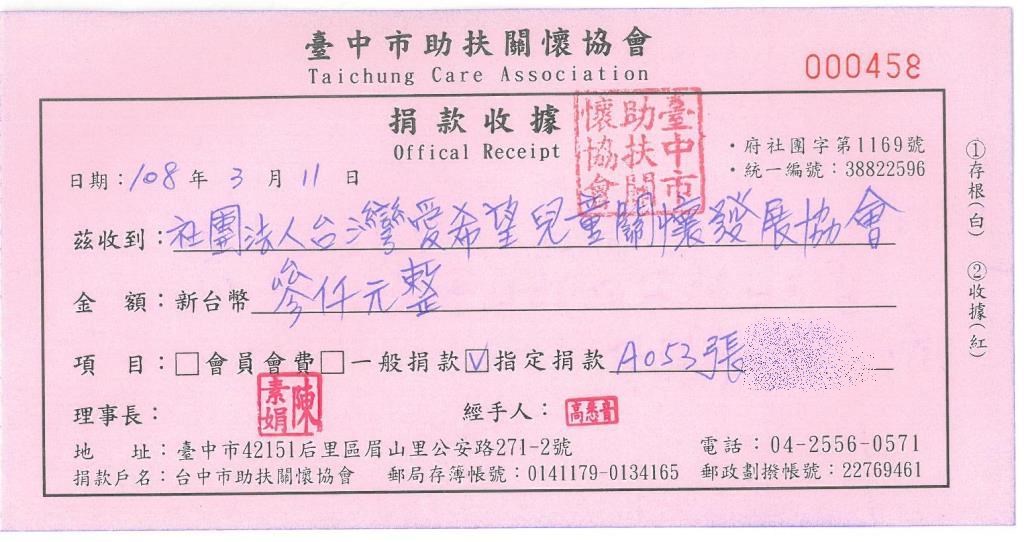 臺中市助扶關懷協會
Taichung Care Association
000458
捐款收據
Offical Receipt
臺中市助扶關懷協會
・府社團字第1169號
・統一編號：38822596
日期：108 年 3 月 11 日
茲收到：社團法人台灣愛希望兒童關懷發展協會
金 額：新台幣 參仟元整
項 目：□會員會費□一般捐款☑指定捐款 A053張
理事長： 陳素娟 經手人：
地 址：臺中市42151后里區眉山里公安路271-2號 電話：04-2556-0571
捐款戶名：台中市助扶關懷協會 郵局存薄帳號：0141179-0134165 郵政劃撥帳號：22769461
①存根(白) ②收據(紅)